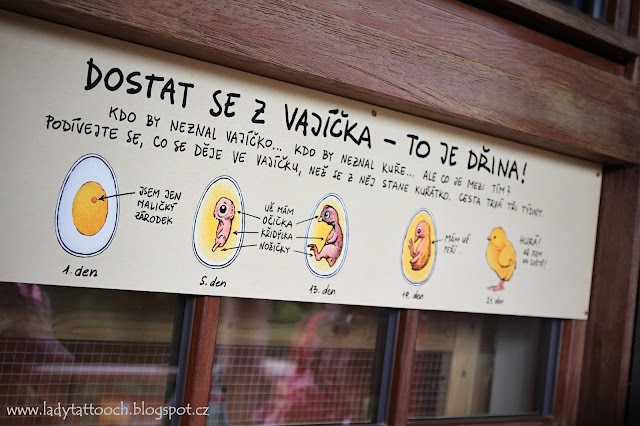 DOSTAT SE Z VAJÍČKA – TO JE DŘINA!
KDO BY NEZNAL VAJÍČKO... KDO BY NEZNAL KUŘE... ALE CO JE MEZI TÍM?
PODÍVEJTE SE, CO SE DĚJE VE VAJÍČKU, NEŽ SE Z NĚJ STANE KUŘÁTKO. CESTA TRVÁ TŘI TÝDNY.
JSEM JEN
MALIČKÝ
ZÁRODEK
1. den
5. den
UŽ MÁM
OČIČKA
KŘIDÝLKA
NOŽIČKY
13. den
MÁM UŽ
PEŘÍ
19. den
HURÁ!
UŽ JSEM
NA SVĚTĚ!
21. den
www.ladytattooch.blogspot.cz